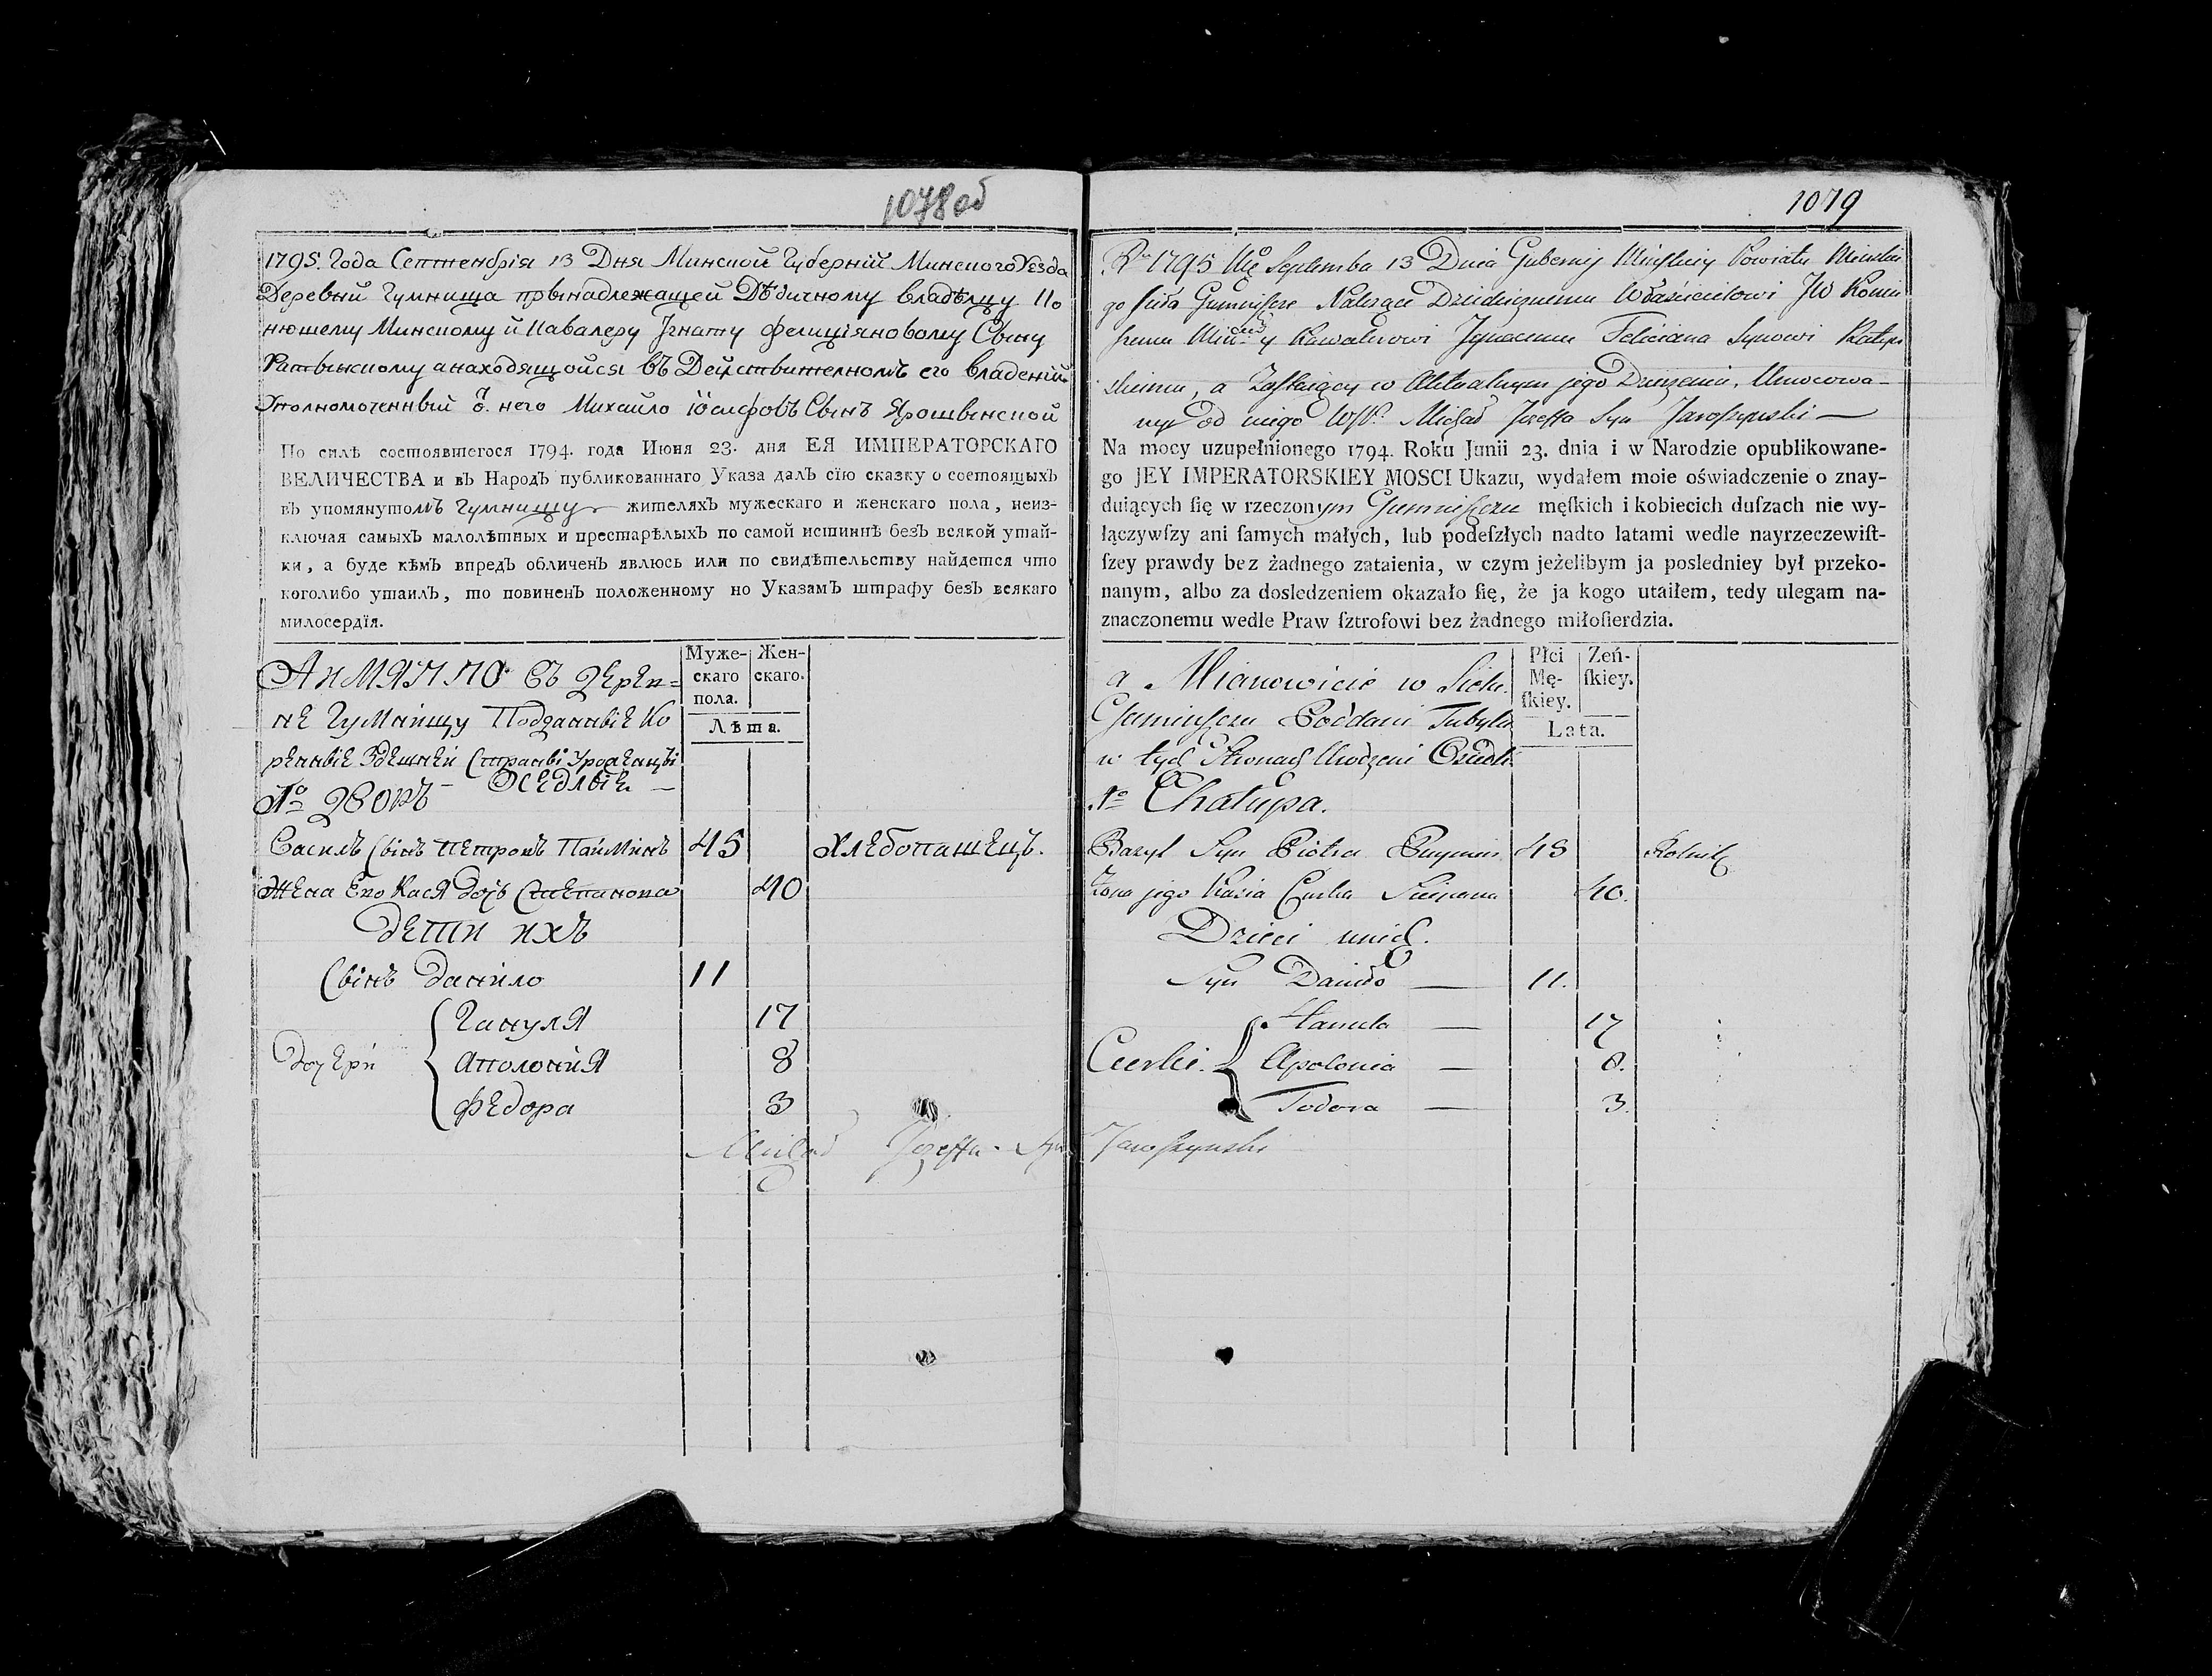 1078 об
1795. Года Септенбрія 13 Дня Минской Губерній Минского Уезда
Деревни Гумнища прынадлежащей Дѣдичному владѣлцу Ко
нюшему Минскому й Кавалеру Jгнату Фелиціяновому Сыну
Ратынскому анаходящойся въ Действителномъ его владеній
Уполномоченный ѿ него Михайло Іосифовъ Сынъ Ярошынской
По силѣ состоявшегося 1794. года Июня 23. дня ЕЯ ИМПЕРАТОРСКАГО
ВЕЛИЧЕСТВА и въ Народъ публикованнаго Указа далъ сїю сказку о состоящыхъ
въ упомянутомъ Гумнищу жителяхъ мужескаго и женскаго пола, неиз-
ключая самыхъ малолѣтныхъ и престарѣлыхъ по самой истиннѣ безъ всякой утай-
ки, а буде кѣмъ впредъ обличенъ явлюсь или по свидѣтельству найдется что
коголибо утаилъ, то повиненъ положенному но Указамъ штрафу безъ всякаго
милосердїя.
Муже-скаго пола. Жен-скаго.
Лѣта.
въ дерев=
не Гумнищу Подданные Ко
ренные здешней Страны Уроденцы
Оседлые
№ дворъ
Василъ Сынъ Петровъ 45 Хлебопашецъ.
Жена его Кася дочъ Степанова 40
дети ихъ
Сынъ данило 11
Гануля 17
дочери Аполонія 8
Федора 3
1079
Rо 1795 Mca Septembra 13 Dnia Gubernij Minskiey Powiatu Minskie
go Sioła Gumniszcze Należące Dziedzicznemu Właścicielowi JW Koniu
szemu Minsk y Kawalerowi Jgnacemu Feliciana Synowi Ratyn
skiemu, a Zostaiący w Aktualnym jego Dzierżeniu, Umocowa-
ny Od niego Michał Jozeffa Syn Jaroszynski
Na mocy uzupełnionego 1794. Roku Junii 23. dnia i w Narodzie opublikowane-
go JEY IMPERATORSKIEY MOSCI Ukazu, wydałem moie oświadczenie o znay-
duiących ſię w rzeczonym Gumniszczu męſkich i kobiecich duſzach nie wy-
łączywſzy ani ſamych małych, lub podeſzłych nadto latami wedle nayrzeczewiſt-
ſzey prawdy bez żadnego zataienia, w czym jeżelibym ja posledniey był przeko-
nanym, albo za dosledzeniem okazało ſię, że ja kogo utaiłem, tedy ulegam na-
znaczonemu wedle Praw ſztrofowi bez żadnego miłoſierdzia.
Płci Mę-ſkiey. Zeń-ſkiey.
Lata.
a Mianowicie w Siole
Gumniszczu Poddani Tubylcy
w tych Stronach Urodzeni Osiedli
№ Chałupa.
Bazyl Syn Piotra 45 Rolnik
Zona jego Kasia Curka Sciepana 40.
Dzieci unich.
Syn Daniło 11.
Hanula 17
Curki. Apolonia 8.
Todora 3.
Michał Jozeffa Syn Jaroszynski